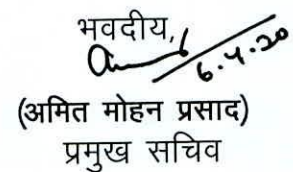 भवदीय,
6.4.20
(अमित मोहन प्रसाद)
प्रमुख सचिव